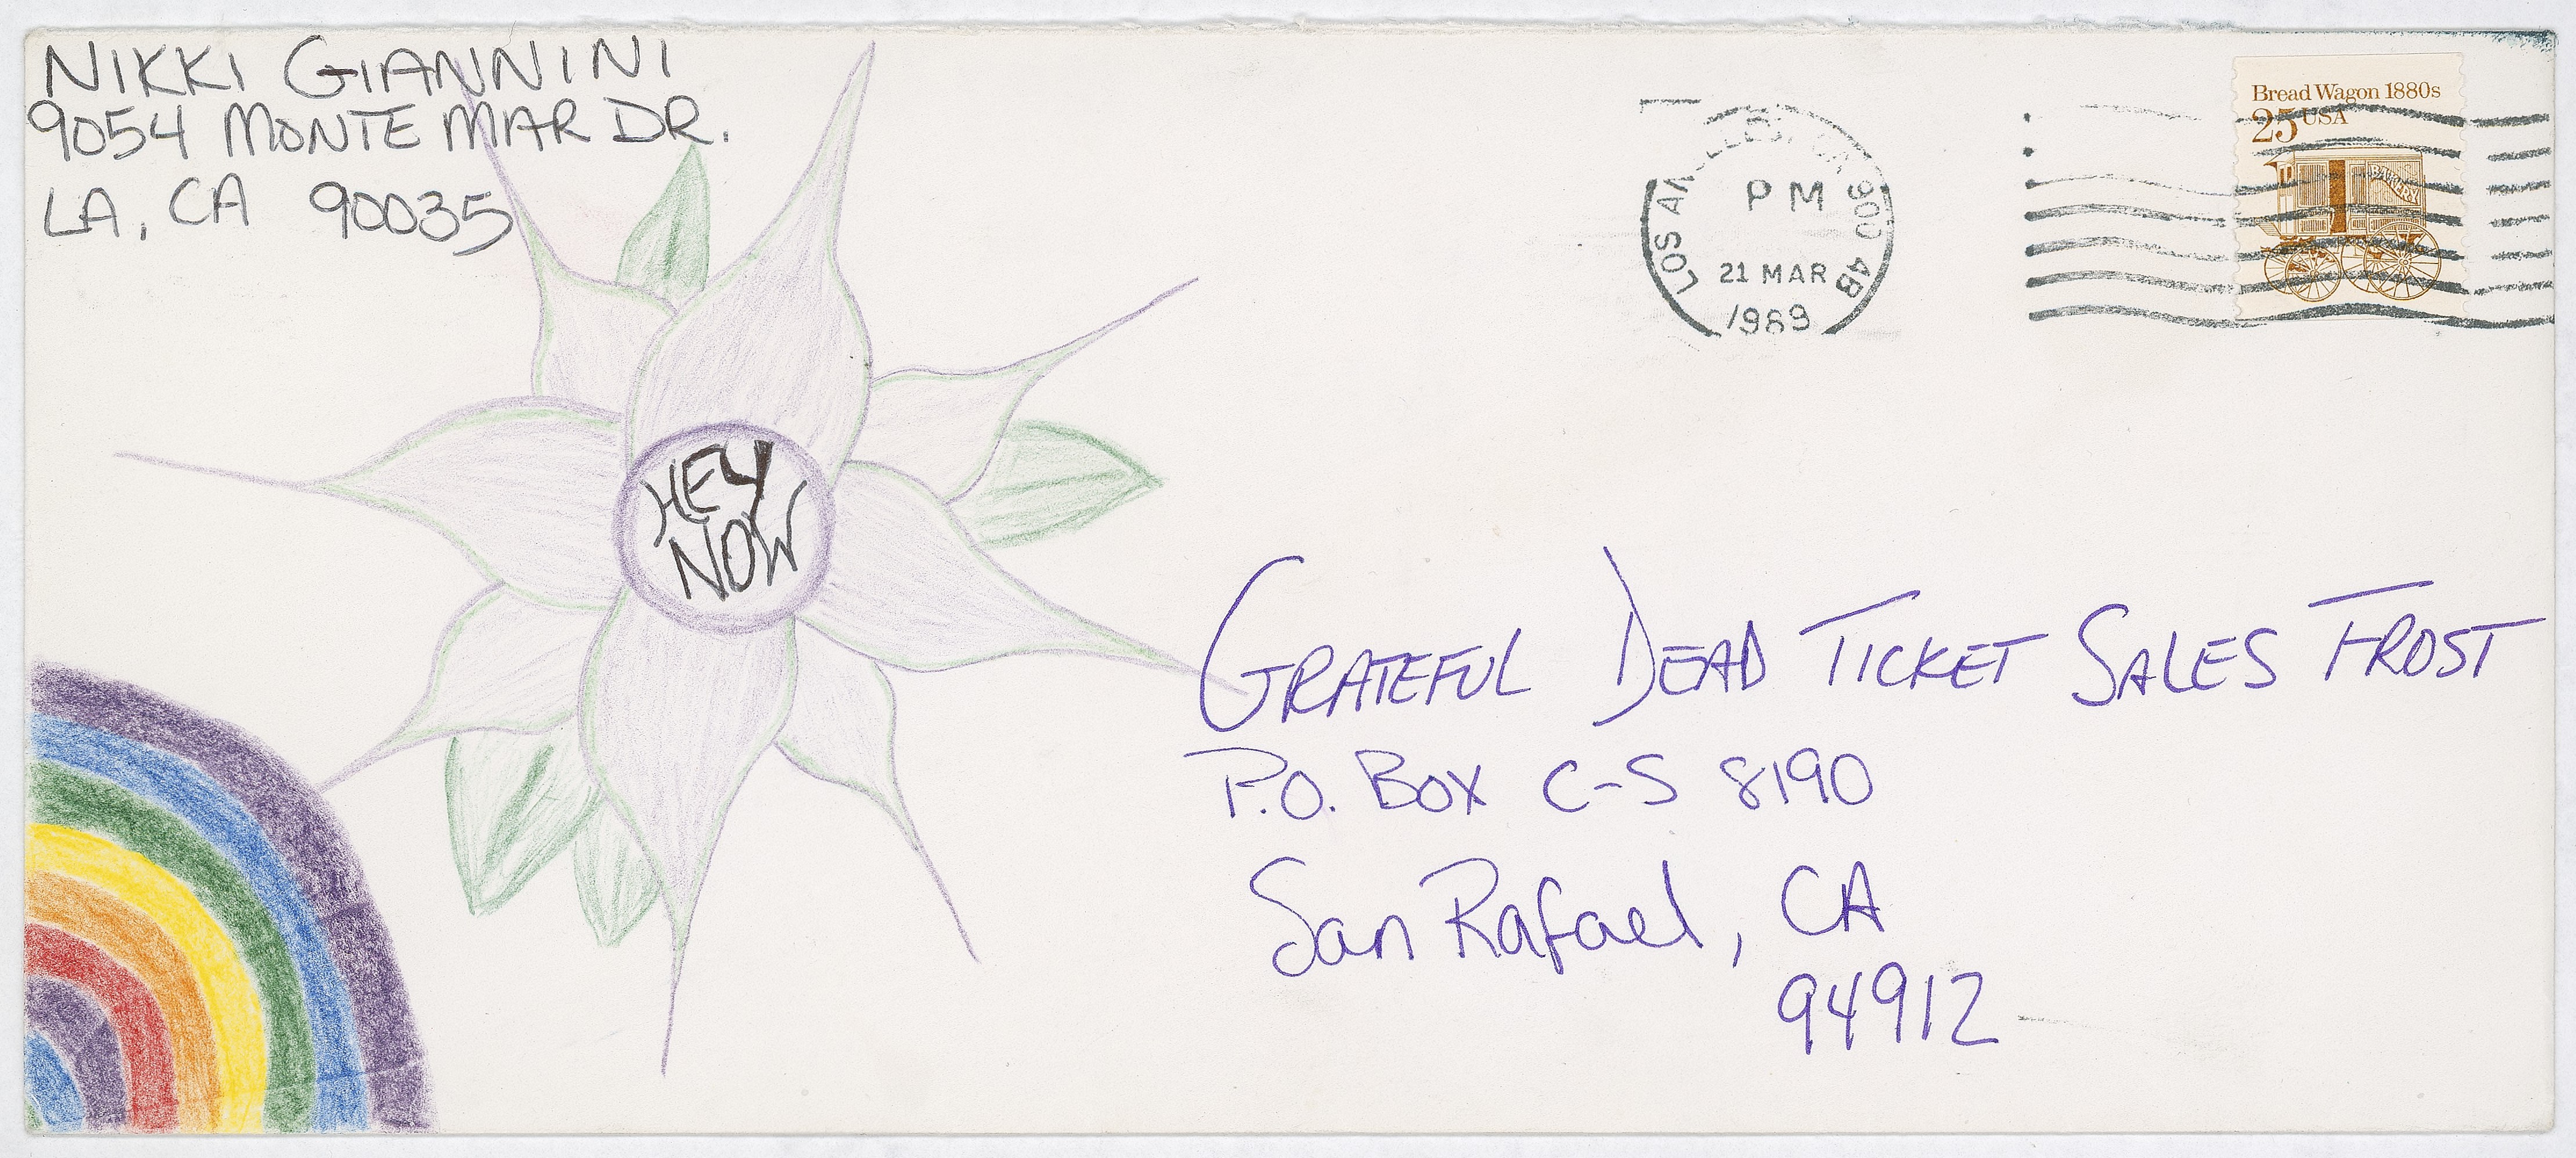 NIKKI GIANNINI
9054 MONTE MAR DR.
LA, CA 90035
HEY
NOW
LOS AN 900 4B
PM
21 MAR
1989
Bread Wagon 1880s
25 USA
BAKERY
GRATEFUL DEAD TICKET SALES FROST
P.O. BOX C-S 8190
San Rafael, CA
94912